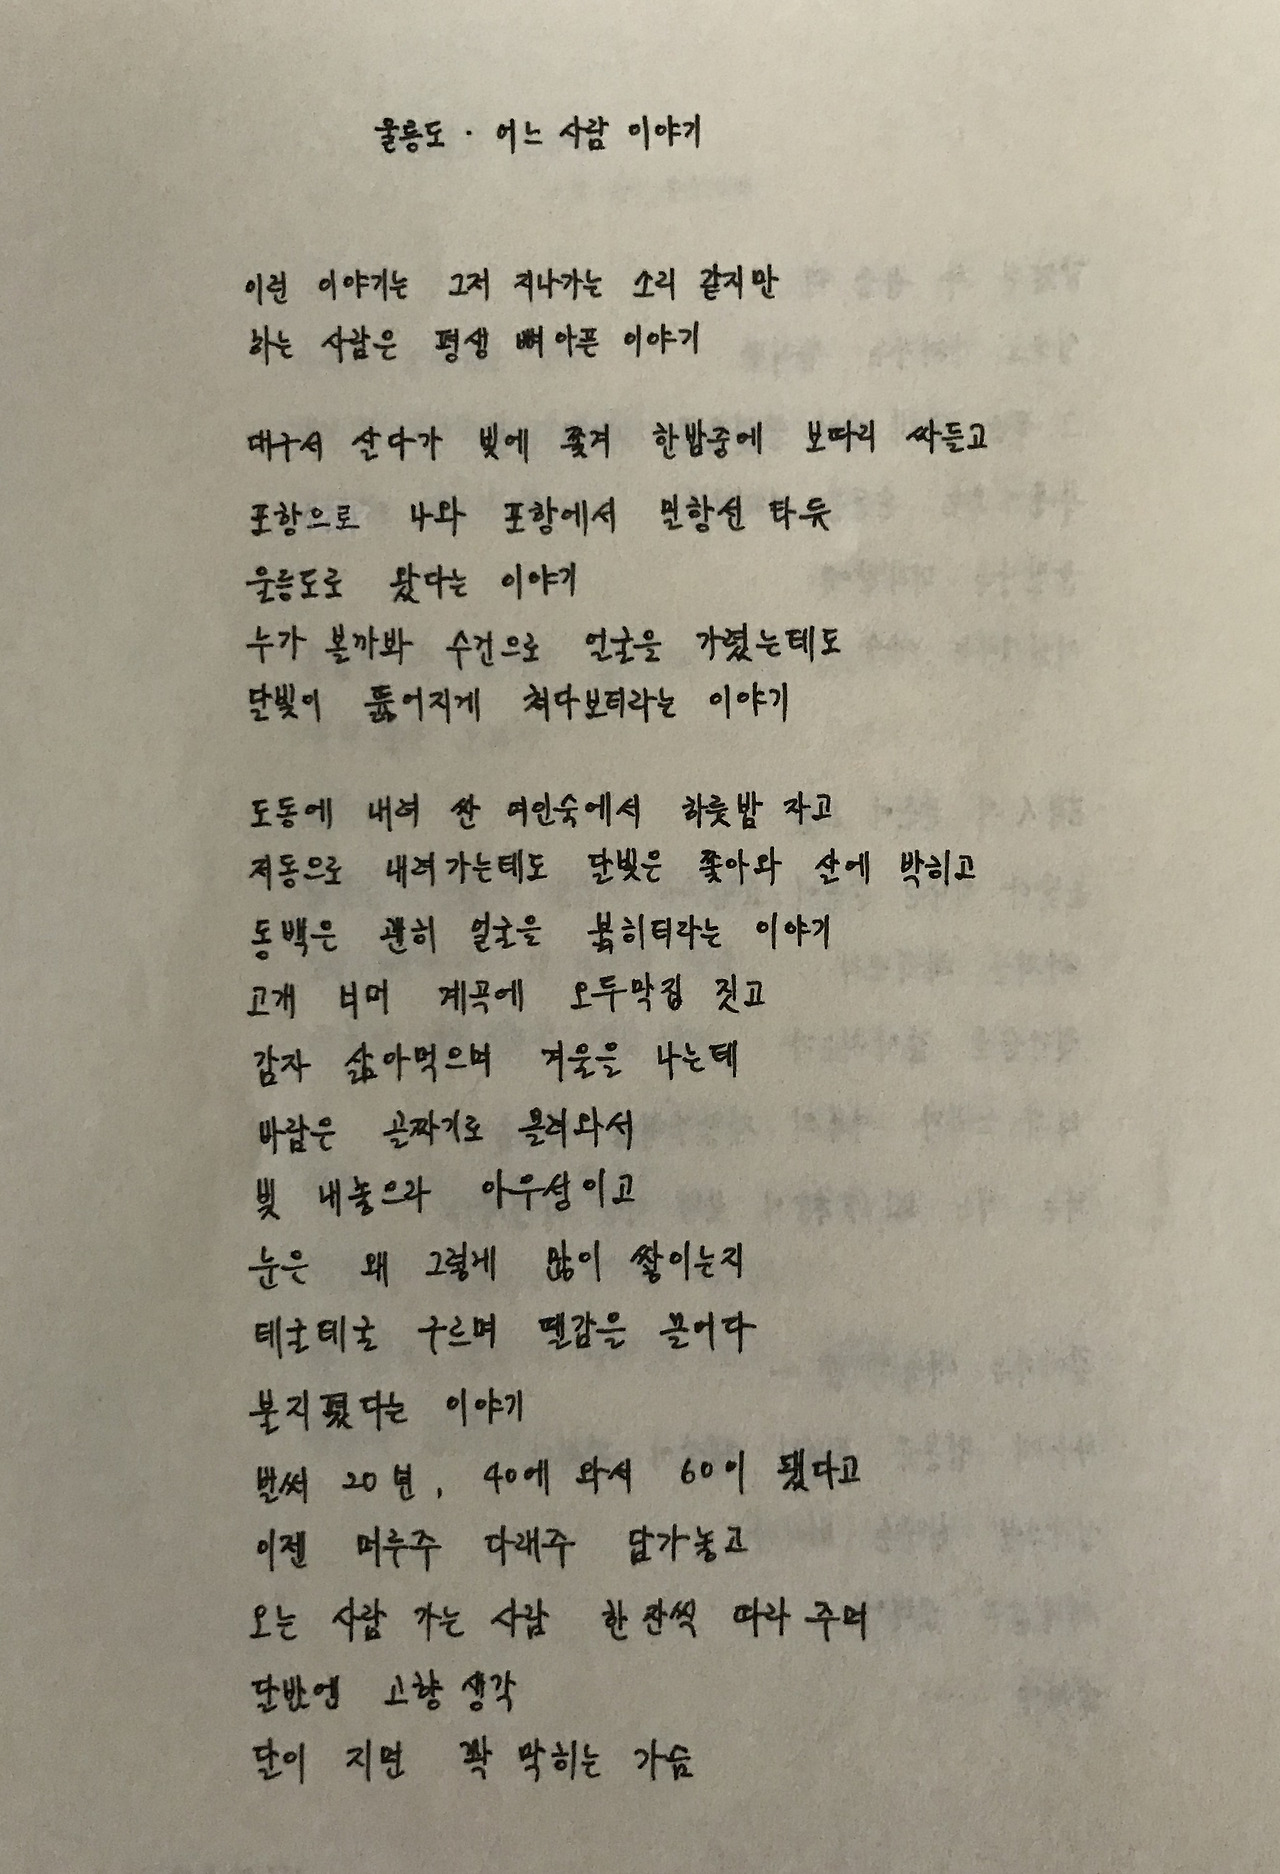 울릉도 · 어느 사람 이야기
이런 이야기는 그저 지나가는 소리 같지만
하는 사람은 평생 뼈아픈 이야기
대구서 살다가 빚에 쫓겨 한밤중에 보따리 싸들고
포항으로 나와 포항에서 밀항선 타듯
울릉도로 왔다는 이야기
누가 볼까봐 수건으로 얼굴을 가렸는데도
달빛이 뚫어지게 쳐다보더라는 이야기
도동에 내려 싼 여인숙에서 하룻밤 자고
저동으로 내려가는데도 달빛은 쫓아와 산에 박히고
동백은 괜히 얼굴을 붉히더라는 이야기
고개 너머 계곡에 오두막집 짓고
감자 삶아먹으며 겨울을 나는데
바람은 골짜기로 몰려와서
빚 내놓으라 아우성이고
눈은 왜 그렇게 많이 쌓이는지
데굴데굴 구르며 땔감을 끌어다
불지폈다는 이야기
벌써 20년, 40에 와서 60이 됐다고
이젠 머루주 다래주 담가놓고
오는 사람 가는 사람 한 잔씩 따라 주며
달밤엔 고향 생각
달이 지면 꽉 막히는 가슴